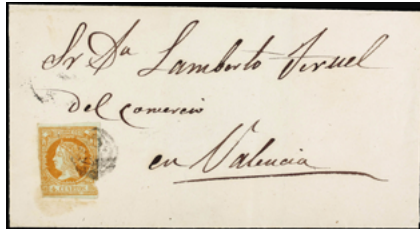 Sr. Dn Lamberto Teruel
del comercio
en Valencia